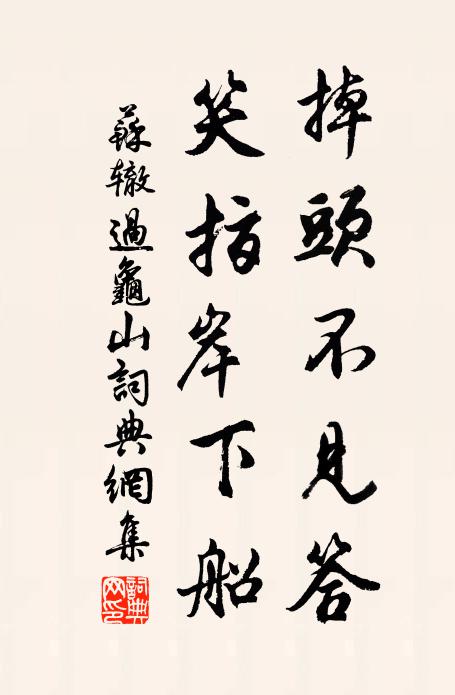 掉頭不見答
笑指岸下船
蘇轍過龜山詞典網集
詞典网印